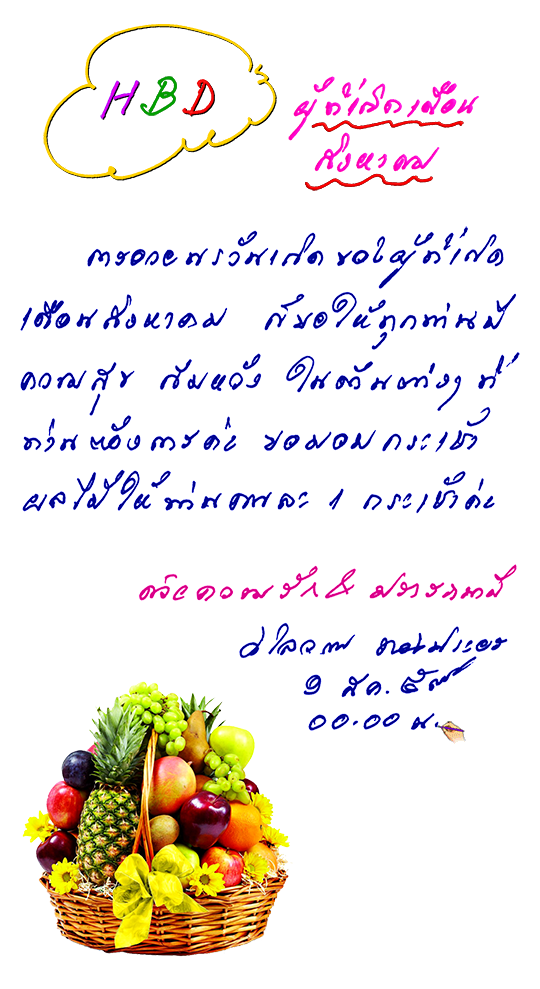 HBD
ผู้ที่เกิดเดือน
สิงหาคม
การอวยพรวันเกิด ขอให้ผู้ที่เกิด
เดือนสิงหาคม ก็ขอให้ทุกท่านมี
ความสุข สมหวัง ในด้านต่างๆ ที่
ท่านต้องการค่ะ ขอมอบกระเช้า
ผลไม้ให้ท่านคนละ 1 กระเช้าค่ะ
ด้วยความรัก & ปรารถนาดี
วิไลวรรณ
๑ ส.ค. ๕๗
00.00 น.